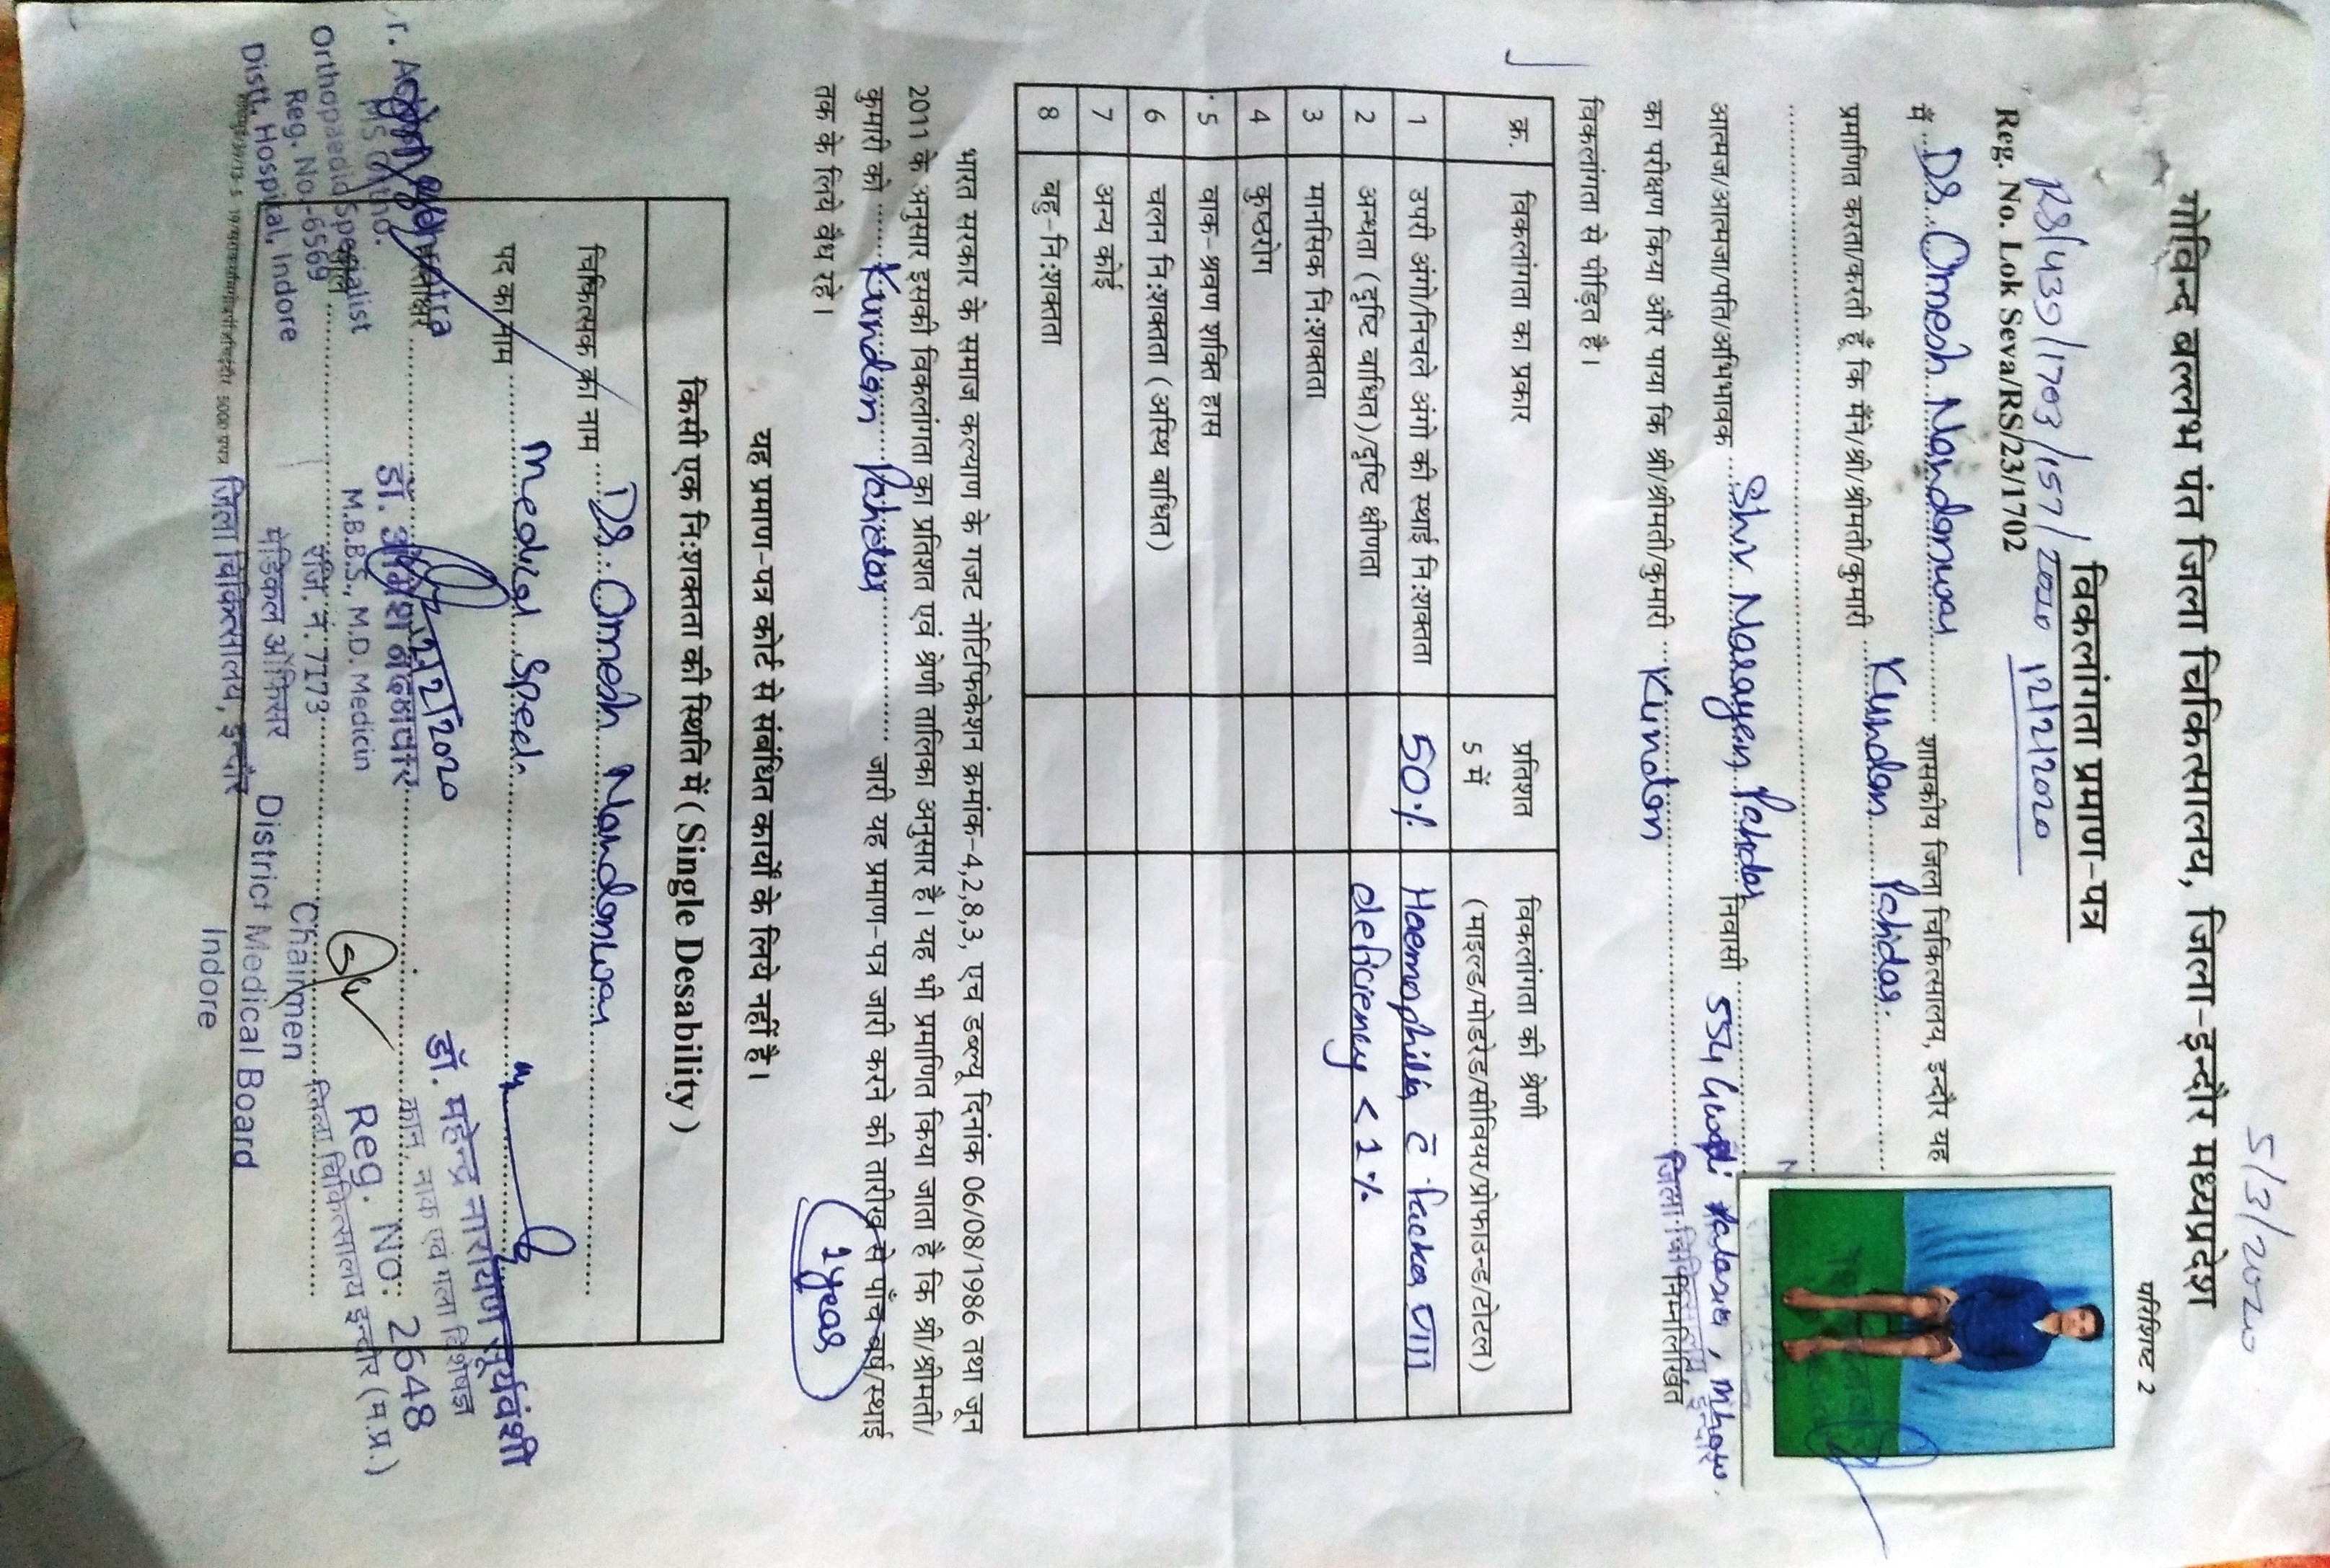 5/3/2020
परिशिष्ट 2
गोविन्द वल्लभ पंत जिला चिकित्सालय, जिला-इन्दौर मध्यप्रदेश
विकलांगता प्रमाण-पत्र
RS/439/1703/157/2020 12/2/2020
Reg. No. Lok Seva/RS/23/1702
मैं Dr. Omesh Nandanwar शासकीय जिला चिकित्सालय, इन्दौर यह
प्रमाणित करता/करती हूँ कि मैंने/श्री/श्रीमती/कुमारी Kundan
आत्मज/आत्मजा/पति/अभिभावक Shiv Narayen निवासी 554 Mhow
का परीक्षण किया और पाया कि श्री/श्रीमती/कुमारी Kundan निम्नलिखित
विकलांगता से पीड़ित है।
क्र. विकलांगता का प्रकार प्रतिशत विकलांगता की श्रेणी
5 में (माइल्ड/मोडरेड/सीवियर/प्रोफाउन्ड/टोटल)
1 उपरी अंगो/निचले अंगो की स्थाई निःशक्तता 50% Haemophilia c̄ factor VIII
2 अन्धता (दृष्टि बाधित)/दृष्टि क्षीणता deficiency < 1%
3 मानसिक निःशक्तता
4 कुष्ठरोग
5 वाक-श्रवण शक्ति हास
6 चलन निःशक्तता (अस्थि बाधित)
7 अन्य कोई
8 बहु-निःशक्तता
भारत सरकार के समाज कल्याण के गजट नोटिफिकेशन क्रमांक-4,2,8,3, एच डब्ल्यु दिनांक 06/08/1986 तथा जून
2011 के अनुसार इसकी विकलांगता का प्रतिशत एवं श्रेणी तालिका अनुसार है। यह भी प्रमाणित किया जाता है कि श्री/श्रीमती/
कुमारी को Kundan जारी यह प्रमाण-पत्र जारी करने की तारीख से पाँच वर्ष/स्थाई
तक के लिये वैध रहे।
यह प्रमाण-पत्र कोर्ट से संबंधित कार्यो के लिये नहीं है।
किसी एक निःशक्तता की स्थिति में (Single Desability)
चिकित्सक का नाम Dr. Omesh Nandanwar
पद का नाम Medical Specl.
हस्ताक्षर
MS Ortho.
Orthopaedic Specialist
Reg. No.-6569
Distt. Hospital, Indore
डॉ. ओमेश नंदनवार
M.B.B.S., M.D. Medicin
रजि. नं. 7173
मेडिकल ऑफिसर
जिला चिकित्सालय, इन्दौर
डॉ. महेन्द्र नारायण सूर्यवंशी
कान, नाक एवं गला विशेषज्ञ
Reg. NO: 2648
जिला चिकित्सालय इन्दौर (म.प्र.)
Chairmen
District Medical Board
Indore